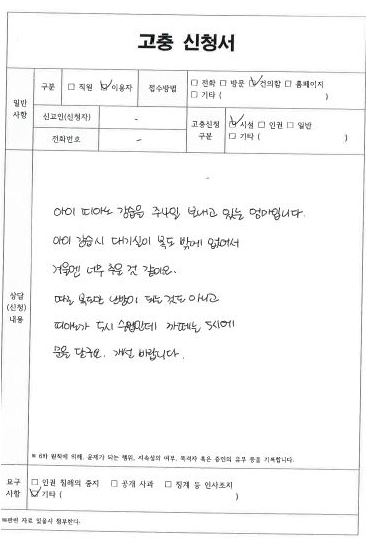 고충 신청서
일반 사항
구분 □ 직원 ☑ 이용자 접수방법 □ 전화 □ 방문 ☑ 건의함 □ 홈페이지 □ 기타 ( )
신고인(신청자) -
전화번호 -
고충신청 구분 ☑ 시설 □ 인권 □ 일반 □ 기타 ( )
상담 (신청) 내용
아이 피아노 강습을 주4일 보내고 있는 엄마입니다.
아이 강습시 대기실이 복도 밖에 없어서
겨울엔 너무 추운 것 같아요.
따로 복도만 난방이 되는것도 아니고
피아노가 5시 수업인데 까페는 5시에
문을 닫구요. 개선 바랍니다.
※ 6하 원칙에 의해, 문제가 되는 행위, 지속성의 여부, 목격자 혹은 증인의 유무 등을 기록합니다.
요구 사항
□ 인권 침해의 중지 □ 공개 사과 □ 징계 등 인사조치
☑ 기타 ( )
※관련 자료 있을시 첨부한다.